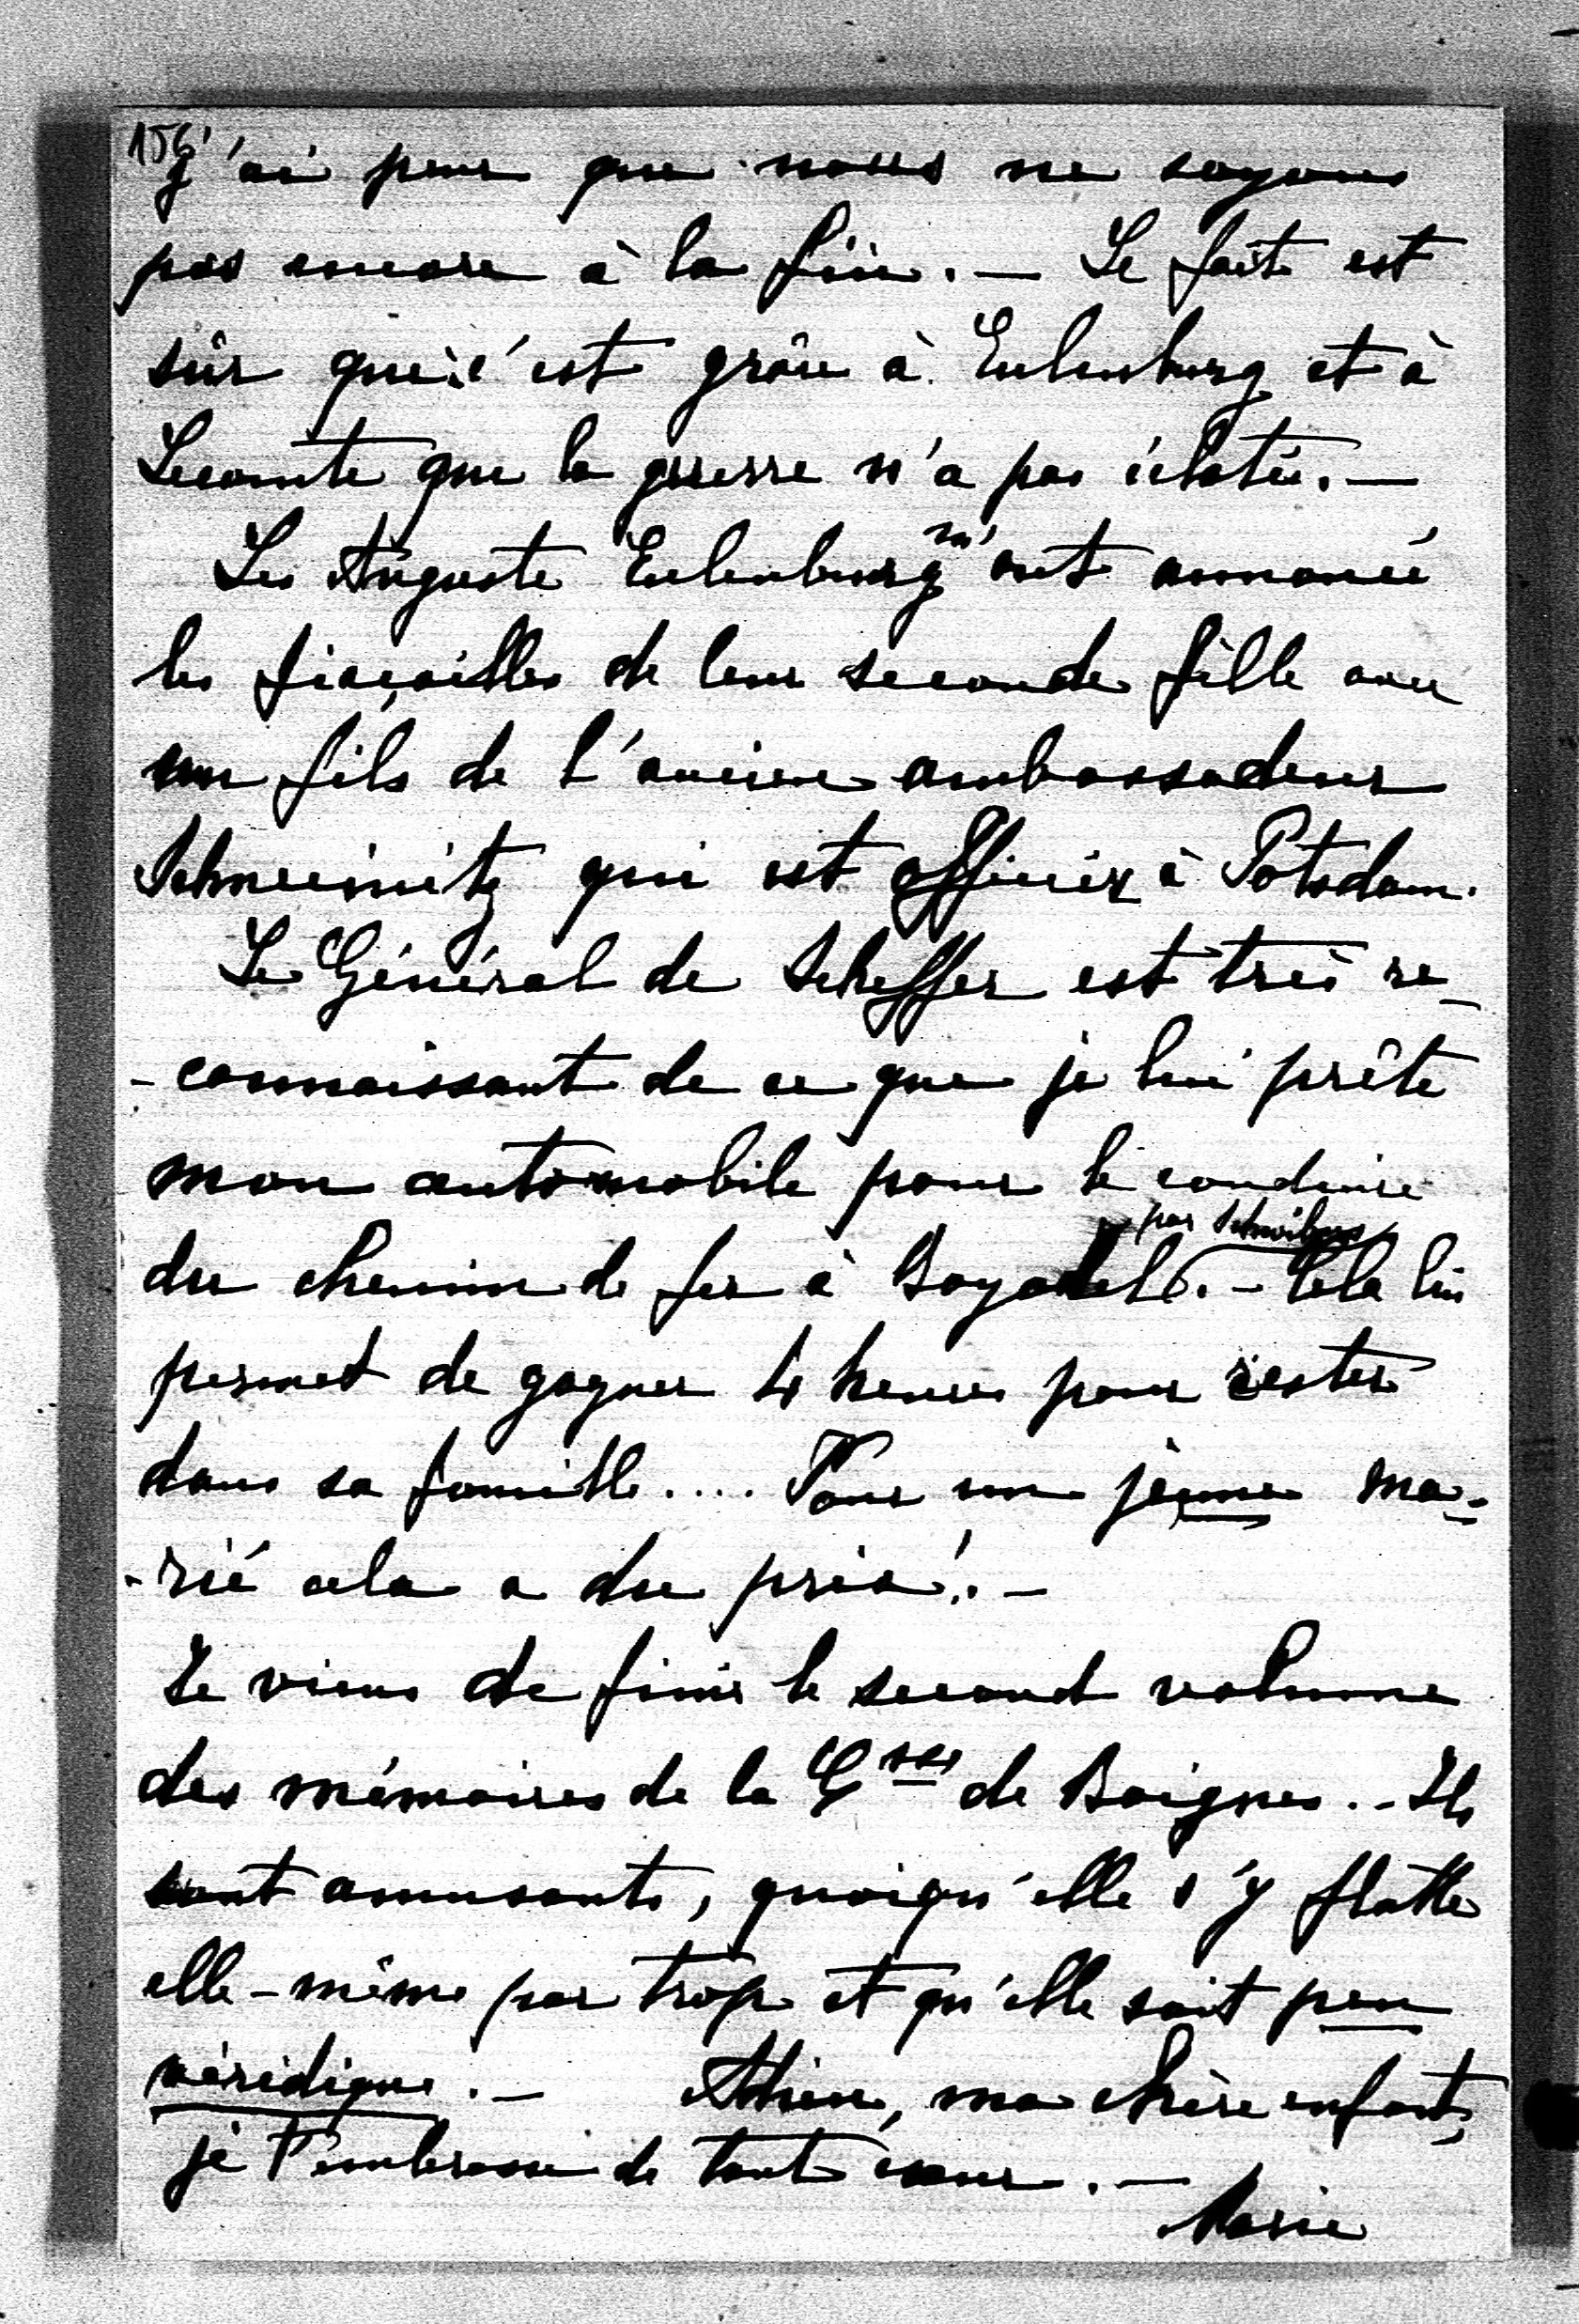 156
J'ai peur que nous ne soyons
pas encore à la fin. — Le fait est
sûr que c'est grâce à Eulenburg et à
Lecomte que la guerre n'a pas éclatée. —
Les Auguste Eulenburg m'ont annoncé
les fiançailles de leur seconde fille avec
un fils de l'ancien ambassadeur
Schweinitz qui est officier à Potsdam.
Le Général de Scheffer est très re-
-connaissant de ce que je lui prête
mon automobile pour le conduire
par Schwiebus
du chemin de fer à Boyadel. — Cela lui
permet de gagner 4 heures pour rester
dans sa famille.... Pour un jeune ma-
-rié cela a du prix! —
Je viens de finir le second volume
des mémoires de la Ctesse de Boignes. - Ils
sont amusants, quoiqu'elle s'y flatte
elle-même par trop et qu'elle soit peu
véridique. — Adieu, ma chère enfant,
je t'embrasse de tout cœur. —
Marie